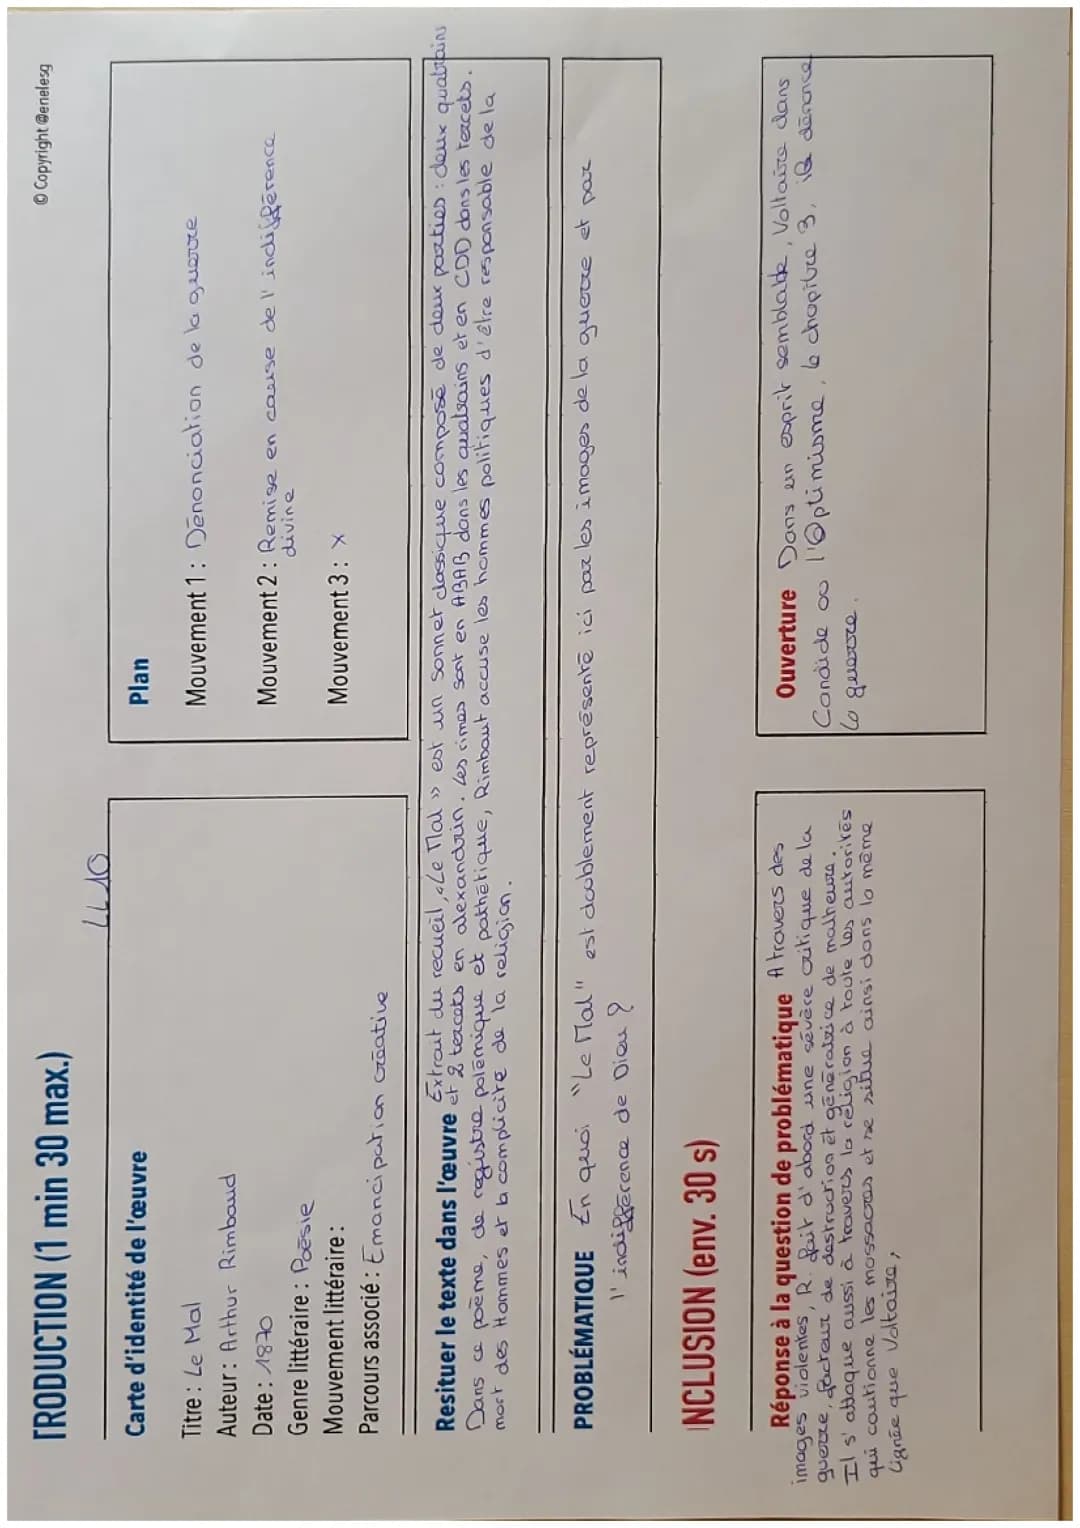 © Copyright @enelesg
TRODUCTION (1 min 30 max.)
LL10
Carte d'identité de l'œuvre
Titre : Le Mal
Auteur : Arthur Rimbaud
Date : 1870
Genre littéraire : Poësie
Mouvement littéraire :
Parcours associé : Emancipation créative
Plan
Mouvement 1 : Dénonciation de la guerre
Mouvement 2 : Remise en cause de l'indifférence
divine
Mouvement 3 : X
Resituer le texte dans l'œuvre Extrait du recueil, « Le Mal » est un sonnet classique composé de deux parties : deux quatrains
et 2 tercets en alexandrin. Les rimes sont en ABAB dans les quatrains et en CDD dans les tercets.
Dans ce poème, de registre polémique et pathétique, Rimbaut accuse les hommes politiques d'être responsable de la
mort des Hommes et la complicité de la religion.
PROBLÉMATIQUE En quoi "Le Mal" est doublement représenté ici par les images de la guerre et par
l'indifférence de Dieu ?
NCLUSION (env. 30 s)
Réponse à la question de problématique A travers des
images violentes, R. fait d'abord une sévère critique de la
guerre, facteur de destruction et génératrice de malheurs.
Il s'attaque aussi à travers la religion à toute les autorités
qui cautionne les massacres et se situe ainsi dans la même
lignée que Voltaire,
Ouverture Dans un esprit semblable, Voltaire dans
Candide ou l'Optimisme, le chapitre 3, il dénonce
la guerre.